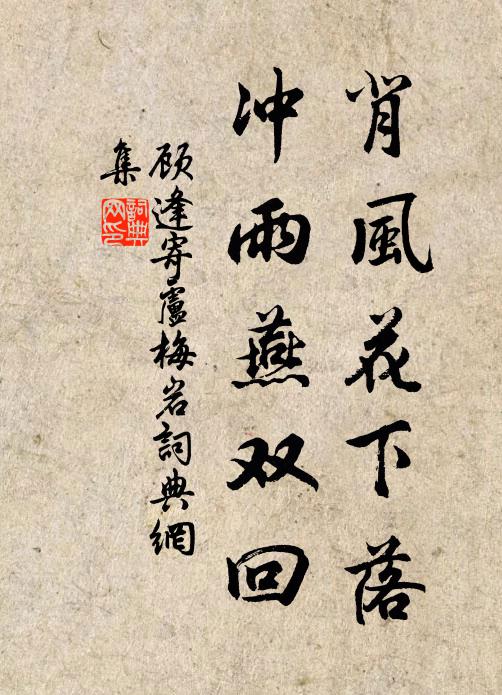 背風花下落
冲雨燕双回
顾逢寄盧梅岩詞典網
集
詞典
网印